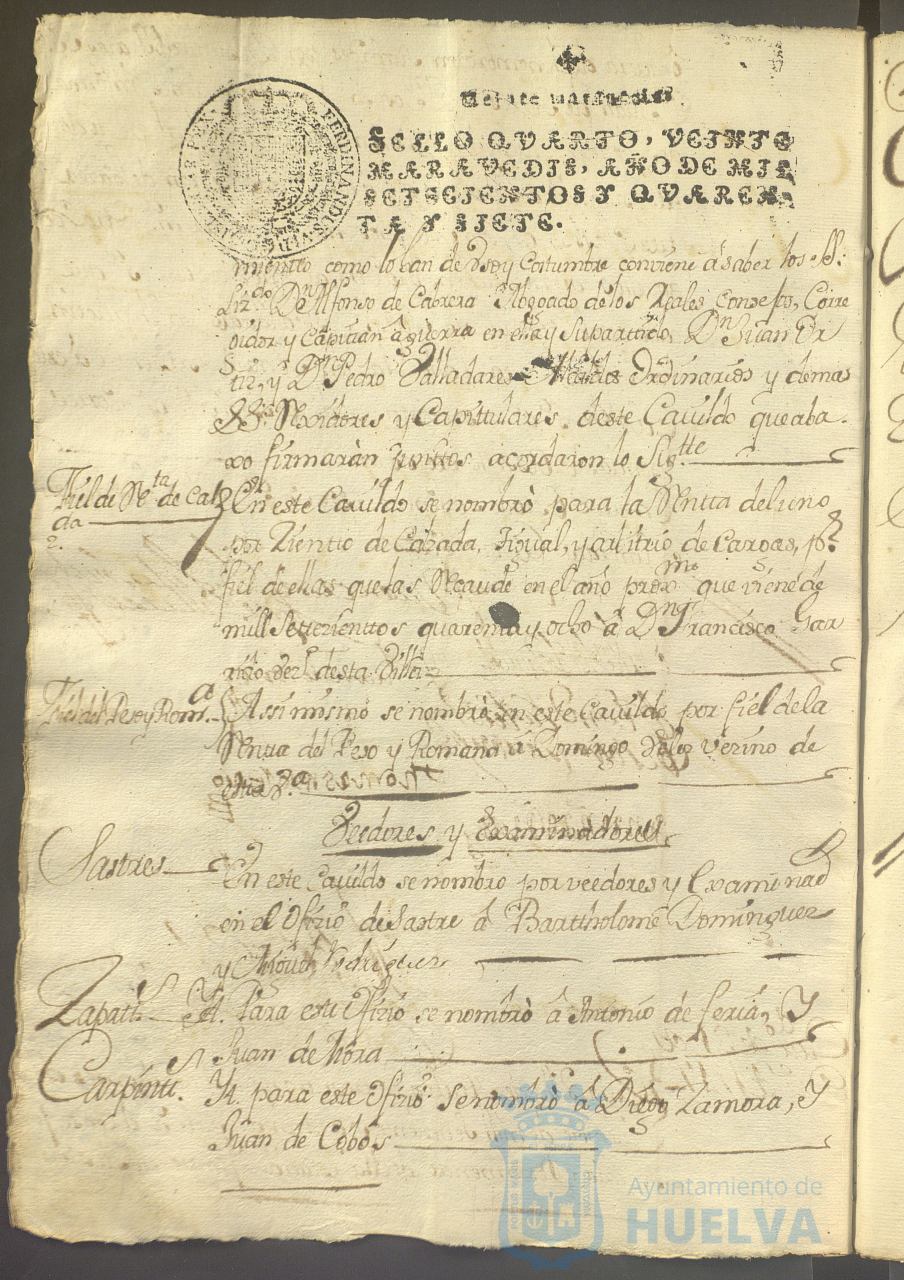 Veinte maravedis.
SELLO QVARTO, VEINTE
MARAVEDIS, AÑO DE MIL
SETECIENTOS Y QVAREN
TA Y SIETE.
FERDINANDVS VI D G
REX
miento como lo han de Vso y costumbre conviene â saber los SS.
Lizdo. Dn. Alfonso de Cabrera Abogado de los Reales Consejos, Corre
gidor y Capitan â guerra en ella y su partido, Dn. Juan Or
tiz, y Dn. Pedro Valladares Alcaldes Ordinarios y demas
SSres. Rexidores y Capittulares deste Cavildo que aba
xo firmaràn juntos acordaron lo Sigtte
Fiel de Rta. de Calza
da
En este Cavildo se nombrò para la Rentta del uno
por Ziento de Calzada, Y igual, y arbitrio de Cargas, pr.
fiel de ellas que las Recaude en el año proxmo. que viene de
mill Settezienttos quarenta y ocho â Dn. Francisco Gar
vezo. desta Villa
Fiel del Peso y Roma.
Assimismo se nombrò en este Cavildo por fiel de la
Rentta del Peso y Romana â Domingo Velez vezino de
esta Va.
Veedores y Examinadores
Sastres
En este Cavildo se nombro por veedores y Examinad
en el Ofizio de Sastre â Barttholomê Dominguez
y Miguel Rodriguez
Zapatts.
Yt. Para este Ofizio se nombrò â Antonio de feria, Y
Juan de Mora
Carpintt.
Yt. para este Ofizio se nombrò â Diego Zamora, Y
Juan de Cobos
Ayuntamiento de
HUELVA